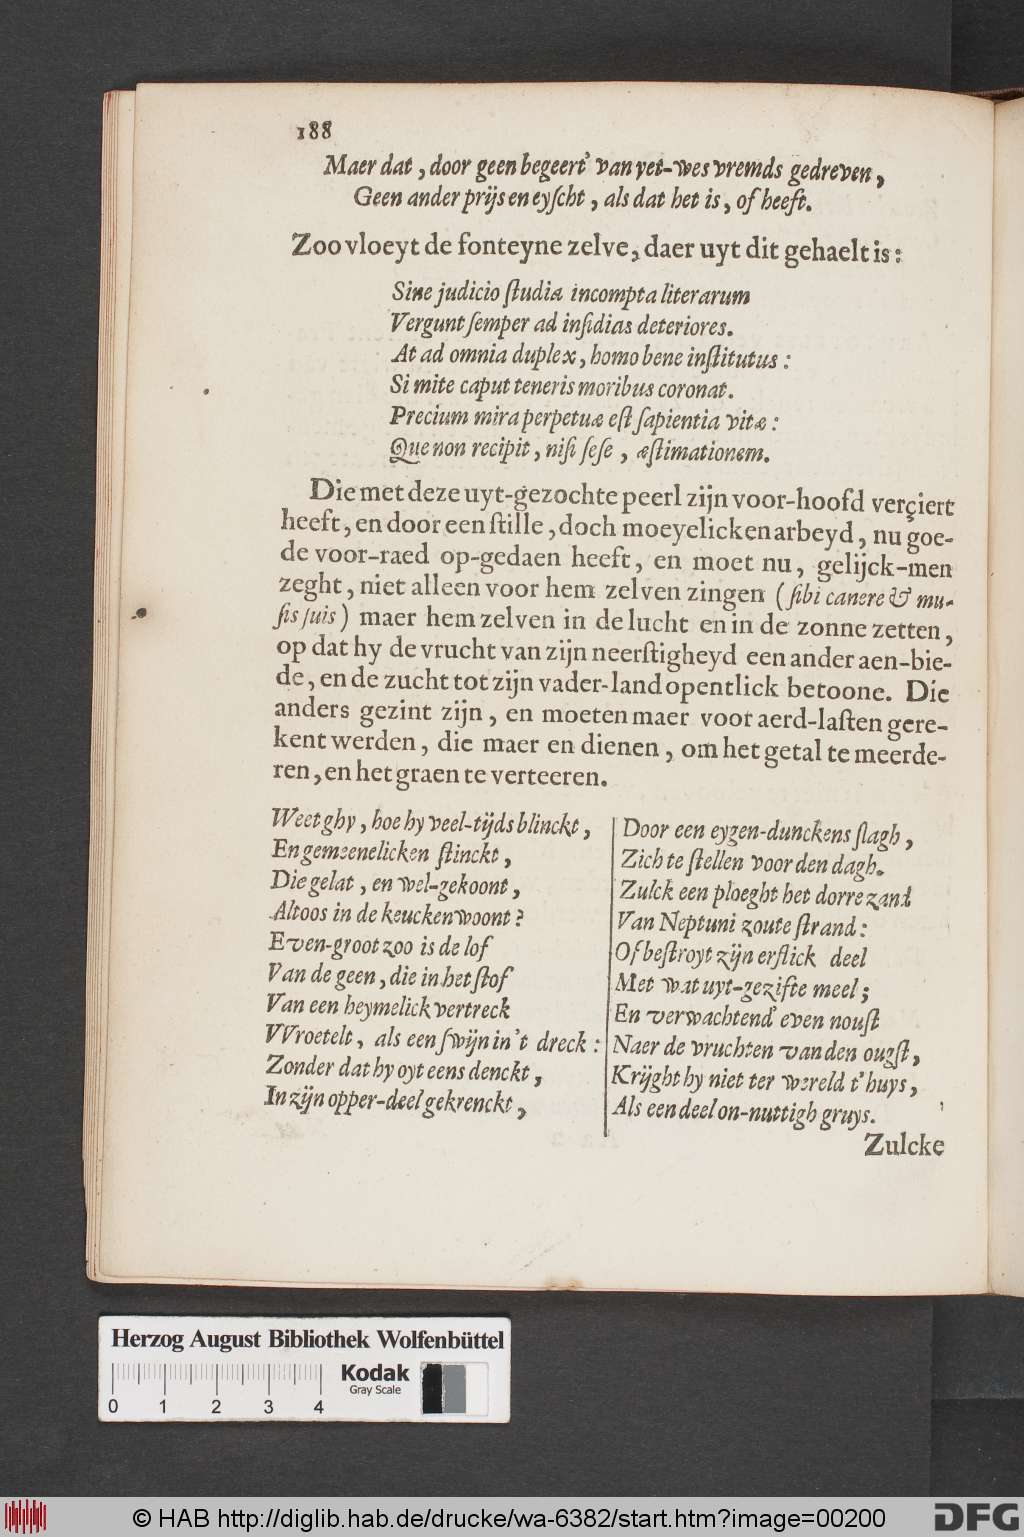 188
Maer dat, door geen begeert' van yet-wes vremds gedreven,
Geen ander prijs en eyſcht, als dat het is, of heeft.
Zoo vloeyt de fonteyne zelve, daer uyt dit gehaelt is:
Sine judicio ſtudia incompta literarum
Vergunt ſemper ad inſidias deteriores.
At ad omnia duplex, homo bene inſtitutus:
Si mite caput teneris moribus coronat.
Precium mira perpetuæ eſt ſapientia vitæ:
Que non recipit, niſi ſeſe, æſtimationem.
Die met deze uyt-gezochte peerl zijn voor-hoofd verçiert
heeft, en door een ſtille, doch moeyelicken arbeyd, nu goe-
de voor-raed op-gedaen heeft, en moet nu, gelijck-men
zeght, niet alleen voor hem zelven zingen (ſibi canere & mu-
ſis ſuis) maer hem zelven in de lucht en in de zonne zetten,
op dat hy de vrucht van zijn neerſtigheyd een ander aen-bie-
de, en de zucht tot zijn vader-land opentlick betoone. Die
anders gezint zijn, en moeten maer voor aerd-laſten gere-
kent werden, die maer en dienen, om het getal te meerde-
ren, en het graen te verteeren.
Weet ghy, hoe hy veel-tijds blinckt,
En gemeenelicken ſtinckt,
Die gelat, en wel-gekoont,
Altoos in de keucken woont?
Even-groot zoo is de lof
Van de geen, die in het ſtof
Van een heymelick vertreck
VVroetelt, als een ſwijn in't dreck:
Zonder dat hy oyt eens denckt,
In zijn opper-deel gekrenckt,
Door een eygen-dunckens ſlagh,
Zich te ſtellen voor den dagh.
Zulck een ploeght het dorre zand
Van Neptuni zoute ſtrand:
Of beſtroyt zijn erflick deel
Met wat uyt-gezifte meel;
En verwachtend' even nouſt
Naer de vruchten van den ougſt,
Krijght hy niet ter wereld t'huys,
Als een deel on-nuttigh gruys.
Zulcke
Herzog August Bibliothek Wolfenbüttel
Kodak
Gray Scale
0 1 2 3 4
© HAB http://diglib.hab.de/drucke/wa-6382/start.htm?image=00200
DFG